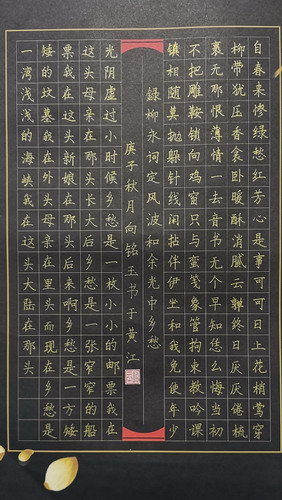 自春来惨绿愁红芳心是事可可日上花梢莺穿
柳带犹压香衾卧暖酥消腻云亸终日厌厌倦梳
裹无那恨薄情一去音书无个早知恁么悔当初
不把雕鞍锁向鸡窗只与蛮笺象管拘束教吟课
镇相随莫抛躲针线闲拈伴伊坐和我免使年少
録柳永词定风波和余光中乡愁
庚子秋月向铭玉书于黄江
光阴虚过小时候乡愁是一枚小小的邮票我在
这头母亲在那头长大后乡愁是一张窄窄的船
票我在这头新娘在那头后来啊乡愁是一方矮
矮的坟墓我在外头母亲在里头而现在乡愁是
一湾浅浅的海峡我在这头大陆在那头